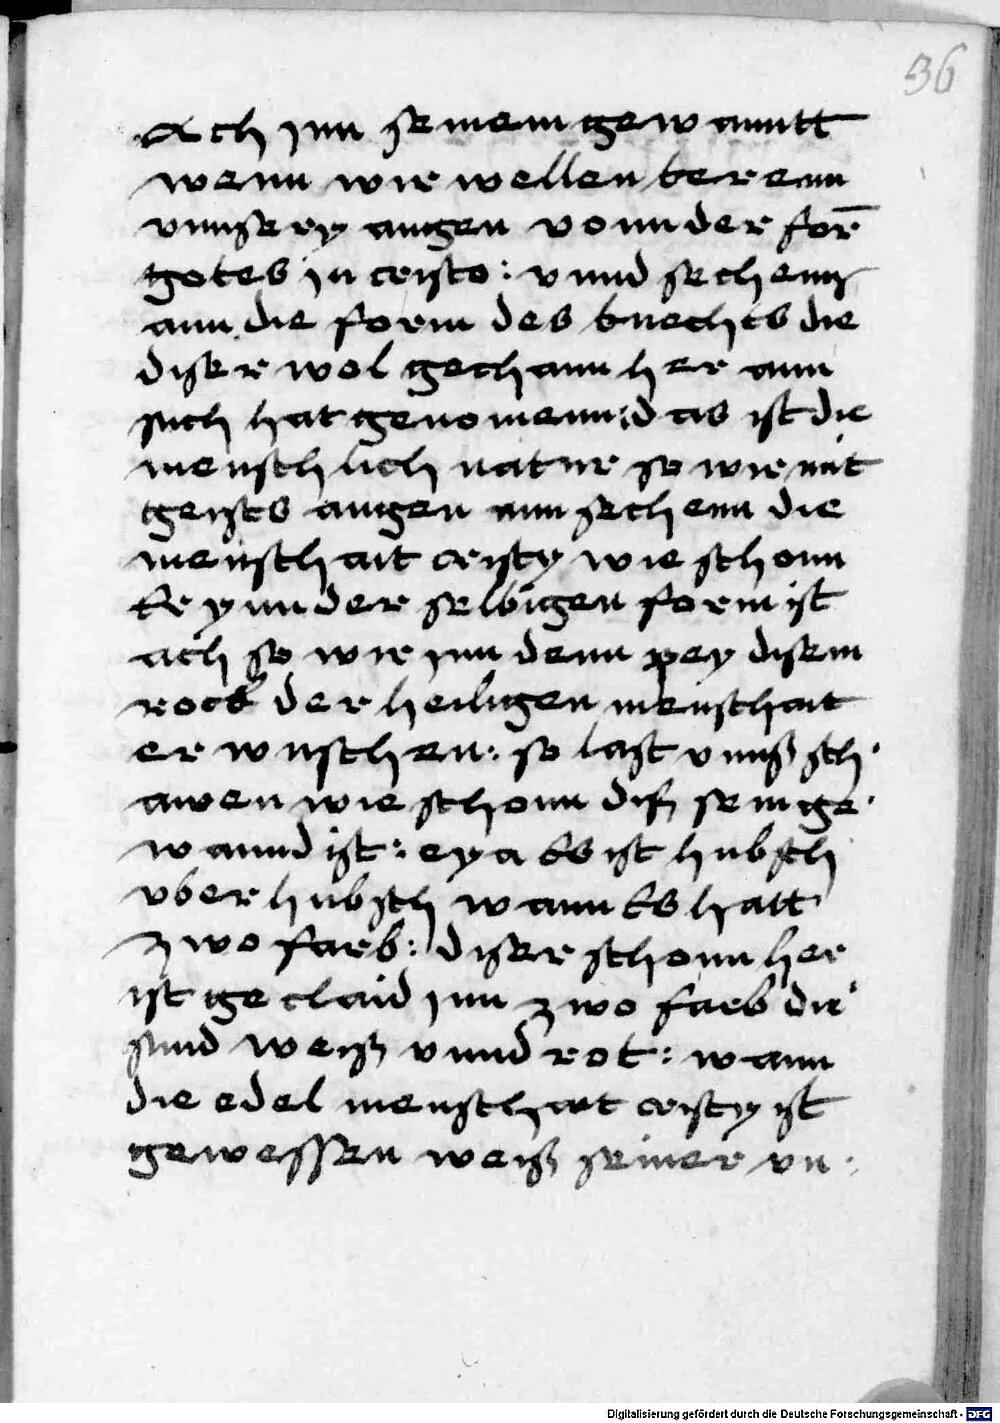 36
Ach jnn seinem gewanntt
wenn wir wellen kerenn
vnnsery augen vonn der for̄
gotes jn cristo : vnnd sechenn
ann die form des knechts die
diser wolgechann her ann
sich hat genomenn : das ist die
menschlich natur so wir mit
geists augen ann sechenn die
menschait cristy wie schonn
er ynn der selbigen form ist
ach so wir jnn denn pey disem
rock der heiligen menschait
erwuschen : so last vnnß sch
awen wie schonn diß sein ge
wannd ist : eya es ist hubsch
vber hubsch wann es hatt
zwo farb : diser schonn her
ist geclaid jnn zwo farb die
sind weiß vnnd rot : wann
die edel menschait cristy ist
gewessen weiß seiner vn
Digitalisierung gefördert durch die Deutsche Forschungsgemeinschaft - DFG